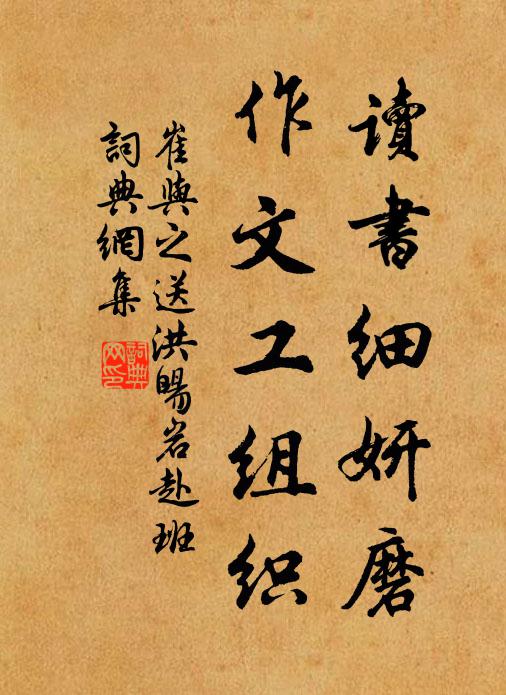 讀書細妍磨
作文工組织
崔與之送洪暘岩赴班
詞典網集
詞典網印